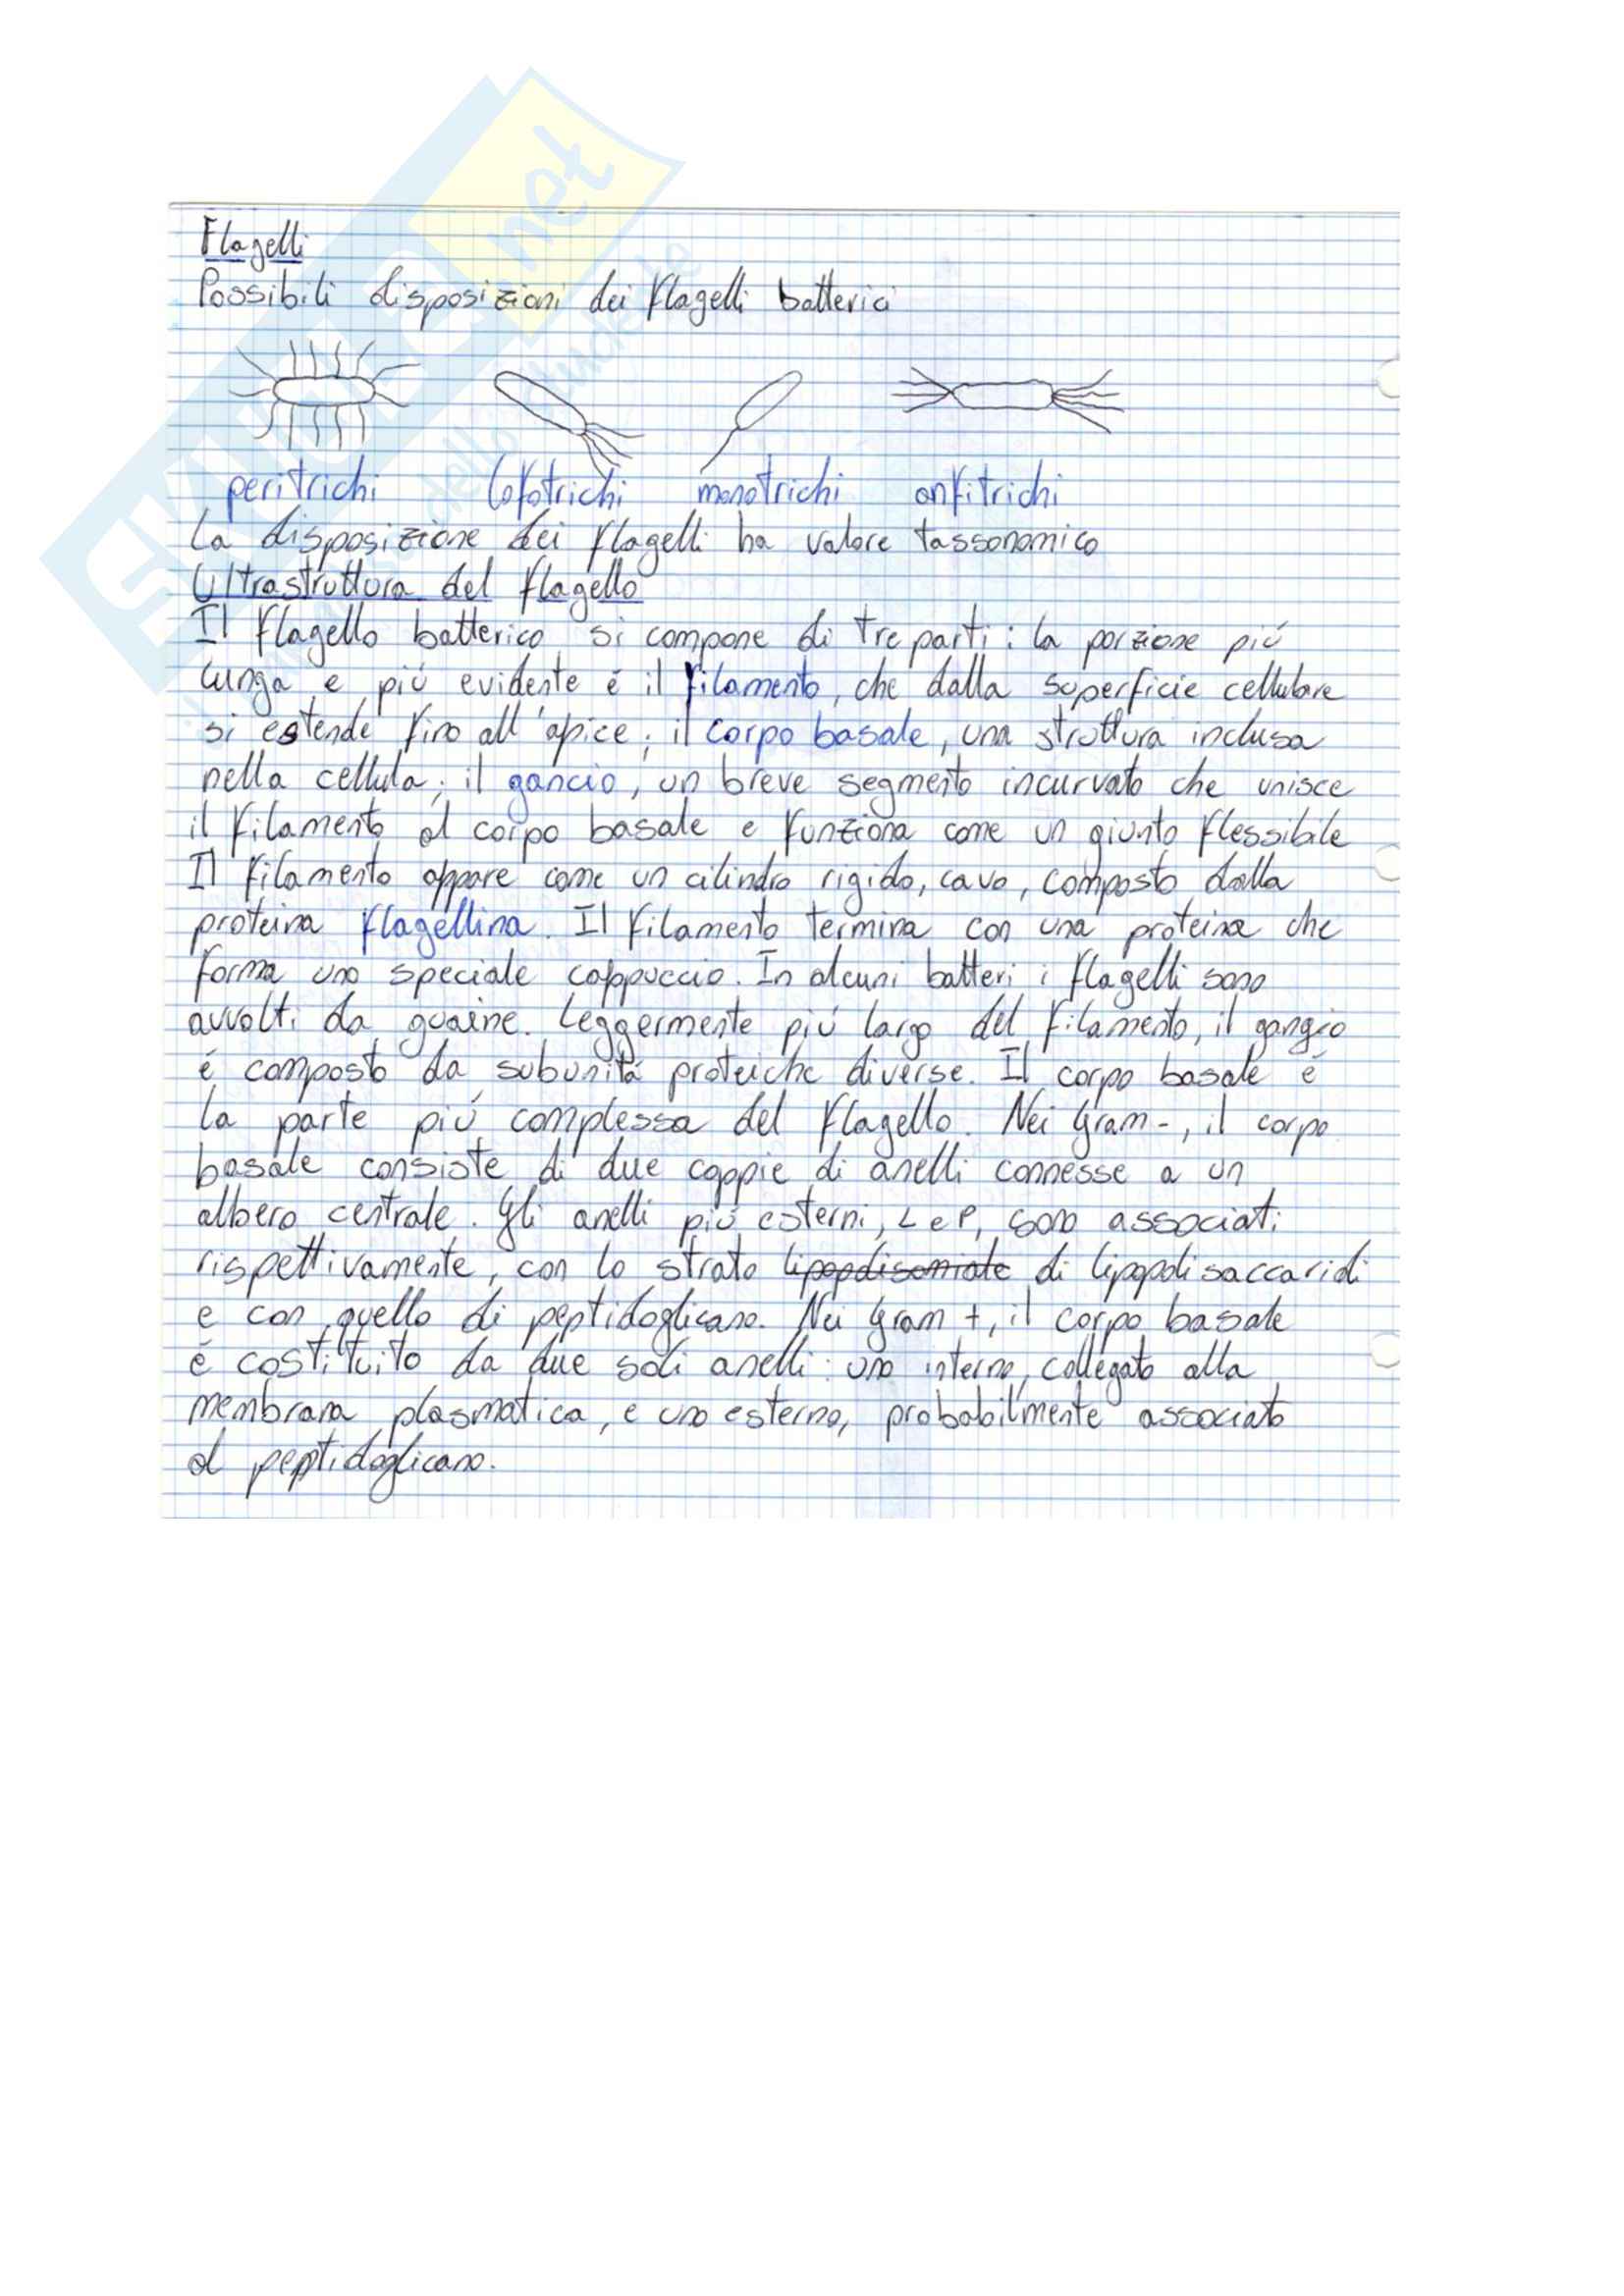 Skuola.net
Flagelli
Possibili disposizioni dei flagelli batterici
peritrichi lofotrichi monotrichi anfitrichi
La disposizione dei flagelli ha valore tassonomico
Ultrastruttura del flagello
Il flagello batterico si compone di tre parti: la porzione più
lunga e più evidente é il filamento, che dalla superficie cellulare
si estende fino all'apice; il corpo basale, una struttura inclusa
nella cellula; il gancio, un breve segmento incurvato che unisce
il filamento al corpo basale e funziona come un giunto flessibile
Il filamento appare come un cilindro rigido, cavo, composto dalla
proteina flagellina. Il filamento termina con una proteina che
forma uno speciale cappuccio. In alcuni batteri i flagelli sono
avvolti da guaine. Leggermente piú largo del filamento, il gangio
é composto da subunitá proteiche diverse. Il corpo basale é
la parte piú complessa del flagello. Nei Gram-, il corpo
basale consiste di due coppie di anelli connesse a un
albero centrale. Gli anelli piú esterni, L e P, sono associati
rispettivamente, con lo strato di lipopolisaccaridi
e con quello di peptidoglicano. Nei Gram +, il corpo basale
é costituito da due soli anelli: uno interno, collegato alla
membrana plasmatica, e uno esterno, probabilmente associato
al peptidoglicano.